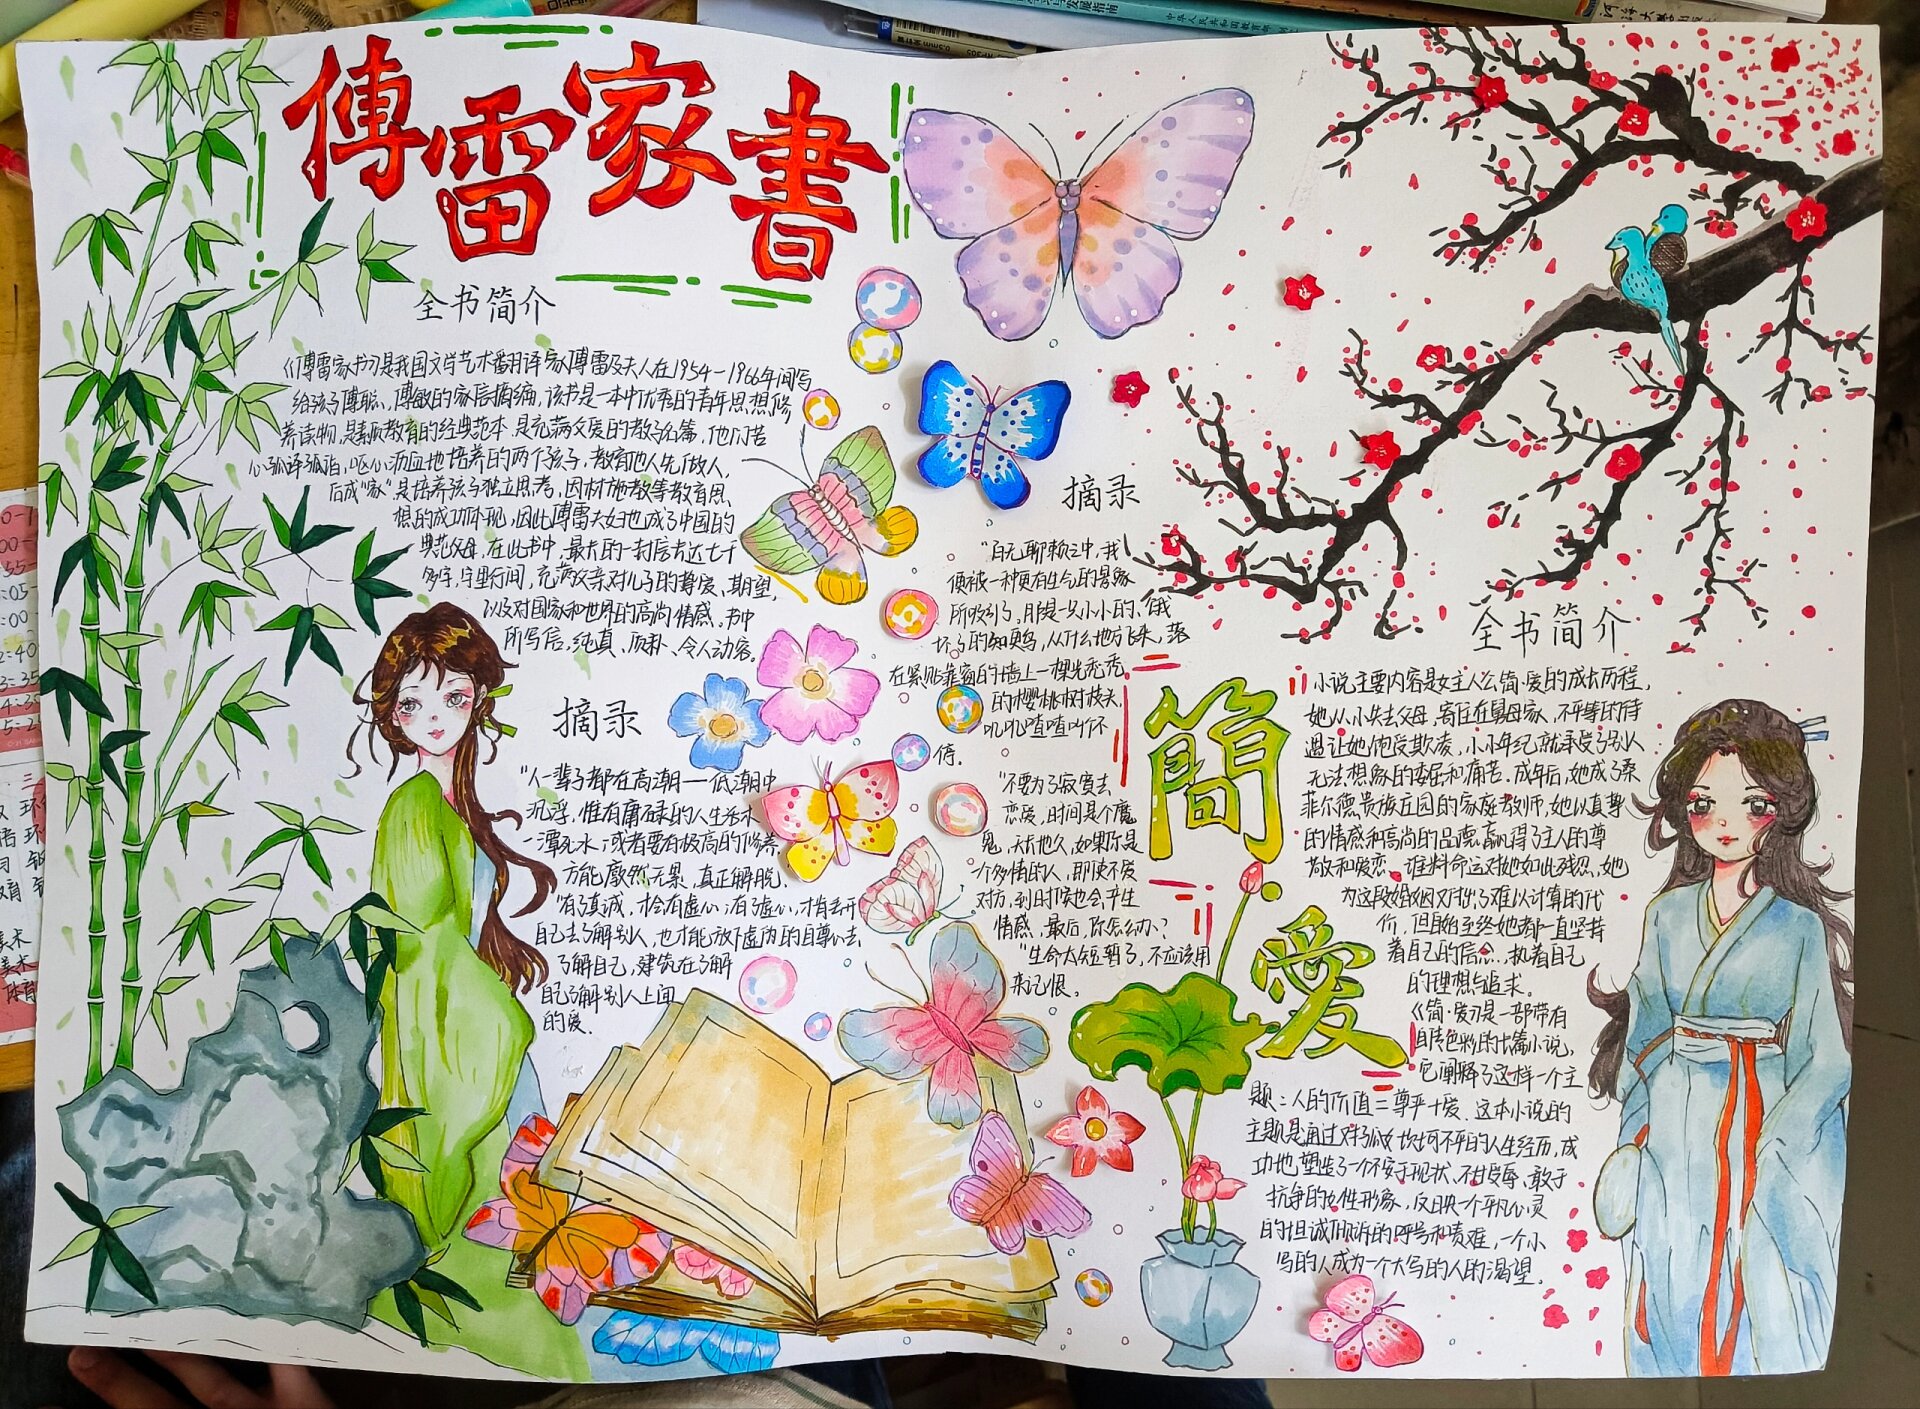 傅雷家書
全书简介
《傅雷家书》是我国文学艺术翻译家傅雷及夫人在1954-1966年间写
给孩子傅聪、傅敏的家信摘编,该书是一本优秀的青年思想修
养读物,是素质教育的经典范本,是充满父爱的教子名篇,他们苦
心孤诣,呕心沥血地培养的两个孩子,教育他人先做人,
后成"家"是培养孩子独立思考,因材施教等教育思
想的成功体现,因此傅雷夫妇也成了中国的
典范父母,在此书中,最长的一封信长达七千
多字,字里行间,充满父亲对儿子的挚爱、期望,
以及对国家和世界的高尚情感,书中
所写信,纯真、质朴、令人动容。
摘录
"人一辈子都在高潮——低潮中
沉浮,惟有庸碌的人生活才
一潭死水;或者要有极高的修养,
方能廓然无累,真正解脱.
"有了真诚,才会有虚心;有了虚心,才肯丢开
自己去了解别人,也才能放下虚伪的自尊心去
了解自己,建筑在了解
自己了解别人上面
的爱.
摘录
"百无聊赖之中,我
便被一种更有生气的景象
所吸引了,那是一只小小的、饿
坏了的知更鸟,从什么地方飞来,落
在紧贴靠窗的墙上一棵光秃秃
的樱桃树枝头,
叽叽喳喳叫个不
停.
"不要为了寂寞去
恋爱,时间是个魔
鬼,天长地久,如果你是
个多情的人,即使不爱
对方,到时候也会产生
情感,最后,你怎么办?
"生命太短暂了,不应该用
来记恨。
簡愛
全书简介
小说主要内容是女主人公简·爱的成长历程,
她从小失去父母,寄住在舅母家,不平等的待
遇让她饱受欺凌,小小年纪就承受了别人
无法想象的委屈和痛苦.成年后,她成了桑
菲尔德贵族庄园的家庭教师,她以真挚
的情感和高尚的品德赢得了主人的尊
敬和爱恋.谁料命运对她如此残忍,她
为这段婚姻又付出了难以计算的代
价,但自始至终她都一直坚持
着自己的信念,执着自己
的理想与追求。
《简·爱》是一部带有
自传色彩的长篇小说,
它阐释了这样一个主
题:人的价值=尊严+爱.这本小说的
主题是通过对孤女坎坷不平的人生经历,成
功地塑造了一个不安于现状、不甘受辱、敢于
抗争的女性形象,反映一个平凡心灵
的坦诚倾诉的呼号和责难,一个小
写的人成为一个大写的人的渴望。